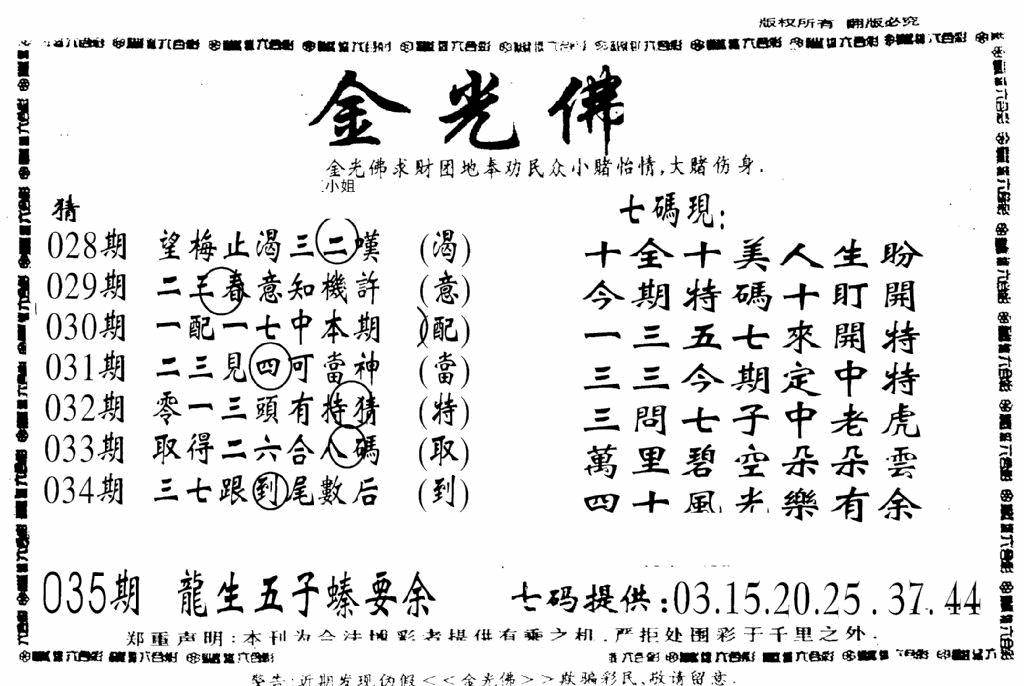 版权所有 翻版必究
金光佛
金光佛求财团地奉劝民众小赌怡情,大赌伤身.
小姐
猜
七碼現:
028期 望梅止渴三二嘆 (渴) 十全十美人生盼
029期 二三春意知機許 (意) 今期特碼十盯開
030期 一配一七中本期 (配) 一三五七來開特
031期 二三見四可當神 (當) 三三今期定中特
032期 零一三頭有特猜 (特) 三問七子中老虎
033期 取得二六合八碼 (取) 萬里碧空朵朵雲
034期 三七跟到尾數后 (到) 四十風光樂有余
035期 龍生五子螓要余 七码提供:03.15.20.25.37.44
郑重声明:本刊为合法博彩者提供有乘之机.严拒处围彩于千里之外.
警告:近期发现伪假<<金光佛>>欺骗彩民,敬请留意.